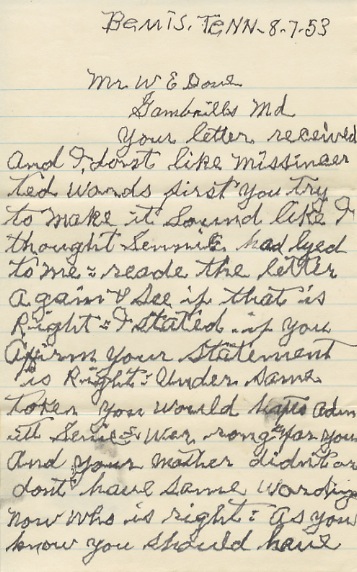 Bemis, Tenn - 8-7-53
Mr W E Dove
Gambrills Md
Your letter received
And I, dont like missinger
ted words first you try
to make it sound like I
thought Sennie had lyed
to me = reade the letter
again & see if that is
Right = I stated if you
Affirm your statement
is Right = Under same
token you would
war rong for you
And your mother didnt or
dont have same wording
now who is right = as you
know you should have